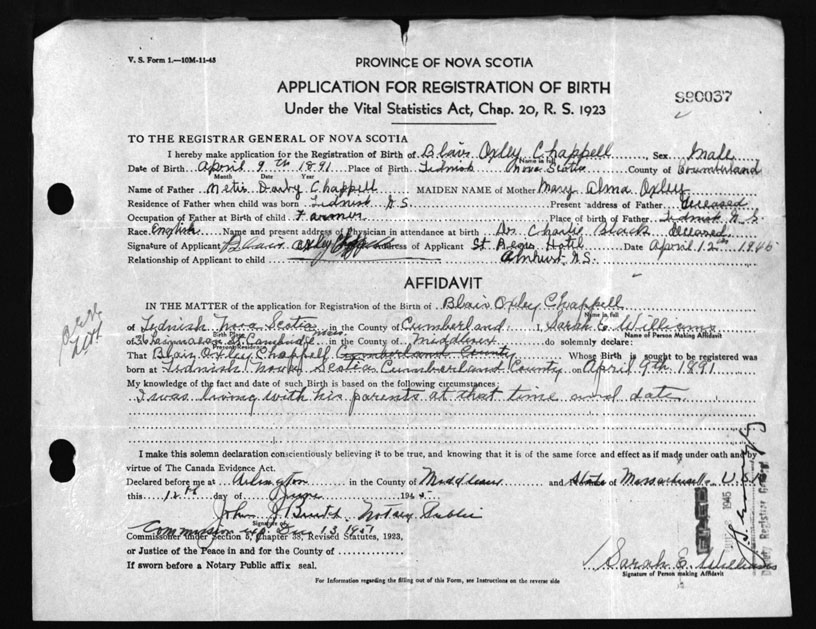 V. S. Form 1.—10M-11-43
PROVINCE OF NOVA SCOTIA
APPLICATION FOR REGISTRATION OF BIRTH
Under the Vital Statistics Act, Chap. 20, R. S. 1923
S90037
TO THE REGISTRAR GENERAL OF NOVA SCOTIA
I hereby make application for the Registration of Birth of Blair Oxley Chappell Sex Male
Name in full
Date of Birth April 9th 1891 Place of Birth Tidnish Nova Scotia County of Cumberland
Month Date Year
Name of Father Darby Chappell MAIDEN NAME of Mother Mary Elma Oxley
Residence of Father when child was born Tidnish N.S. Present address of Father deceased
Occupation of Father at Birth of child Farmer Place of birth of Father Tidnish N.S.
Race English Name and present address of Physician in attendance at birth Dr. Charlie Black deceased
Signature of Applicant Blair Oxley Chappell Address of Applicant St Regis Hotel Date April 12th 1945
Relationship of Applicant to child Amherst N.S.
AFFIDAVIT
IN THE MATTER of the application for Registration of the Birth of Blair Oxley Chappell
Name in full
of Tidnish Nova Scotia in the County of Cumberland I, Sarah E. Williams
Birth Place Name of Person Making Affidavit
of 36 St. Cambridge Mass. in the County of Middlesex do solemnly declare:
Present Residence
That Blair Oxley Chappell Cumberland County Whose Birth is sought to be registered was
born at Tidnish Nova Scotia Cumberland County on April 9th 1891
My knowledge of the fact and date of such Birth is based on the following circumstances:
I was living with his parents at that time and date
I make this solemn declaration conscientiously believing it to be true, and knowing that it is of the same force and effect as if made under oath and by
virtue of The Canada Evidence Act.
Declared before me at Arlington in the County of Middlesex and State of Massachusetts U.S.A.
this 12th day of June 1945
John J. Notary Public
Signature of
Commission exp. Dec 13 1951
Commissioner under Section 5, Chapter 38, Revised Statutes, 1923,
or Justice of the Peace in and for the County of
If sworn before a Notary Public affix seal.
Sarah E. Williams
Signature of Person making Affidavit
For Information regarding the filling out of this Form, see Instructions on the reverse side
1945
Deputy Registrar General